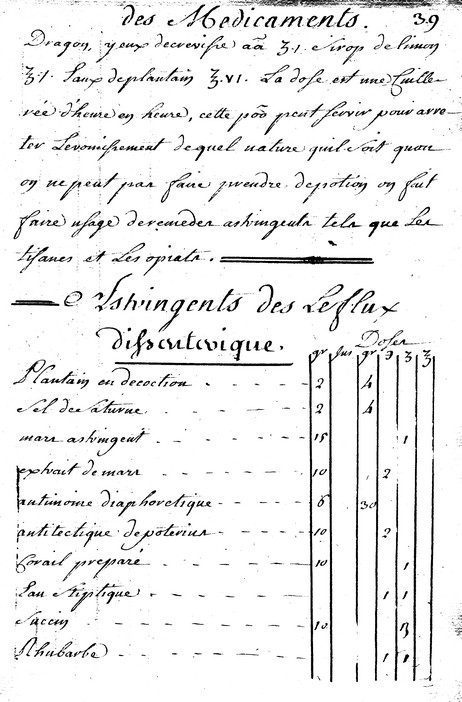 des Medicaments. 39
Dragon, yeux decrevisse aã ʒ.1. sirop de limon
ʒ.1. Eaux de plantain ℥.VI. La dose est une Cuille-
rée d'heure en heure, cette poõ peut servir pour arre-
ter Levomissement de quel nature quil soit quon
on ne peut pas faire prendre depotion on fait
faire usage deremedes astringents tels que Les
tisanes et Les opiats.
Astringents des Le flux
dissenterique.
Doses
gr jus gr ℈ ʒ ℥
Plantain en decoction 2 4
Sel de Saturne 2 4
mars astringent 15 1
extrait de mars 10 2
antimoine diaphoretique 6 30
antitectique de poterius 10 2
Corail preparé 10 1
Eau stiptique 1 1
Succin 10
Rhubarbe 1 1